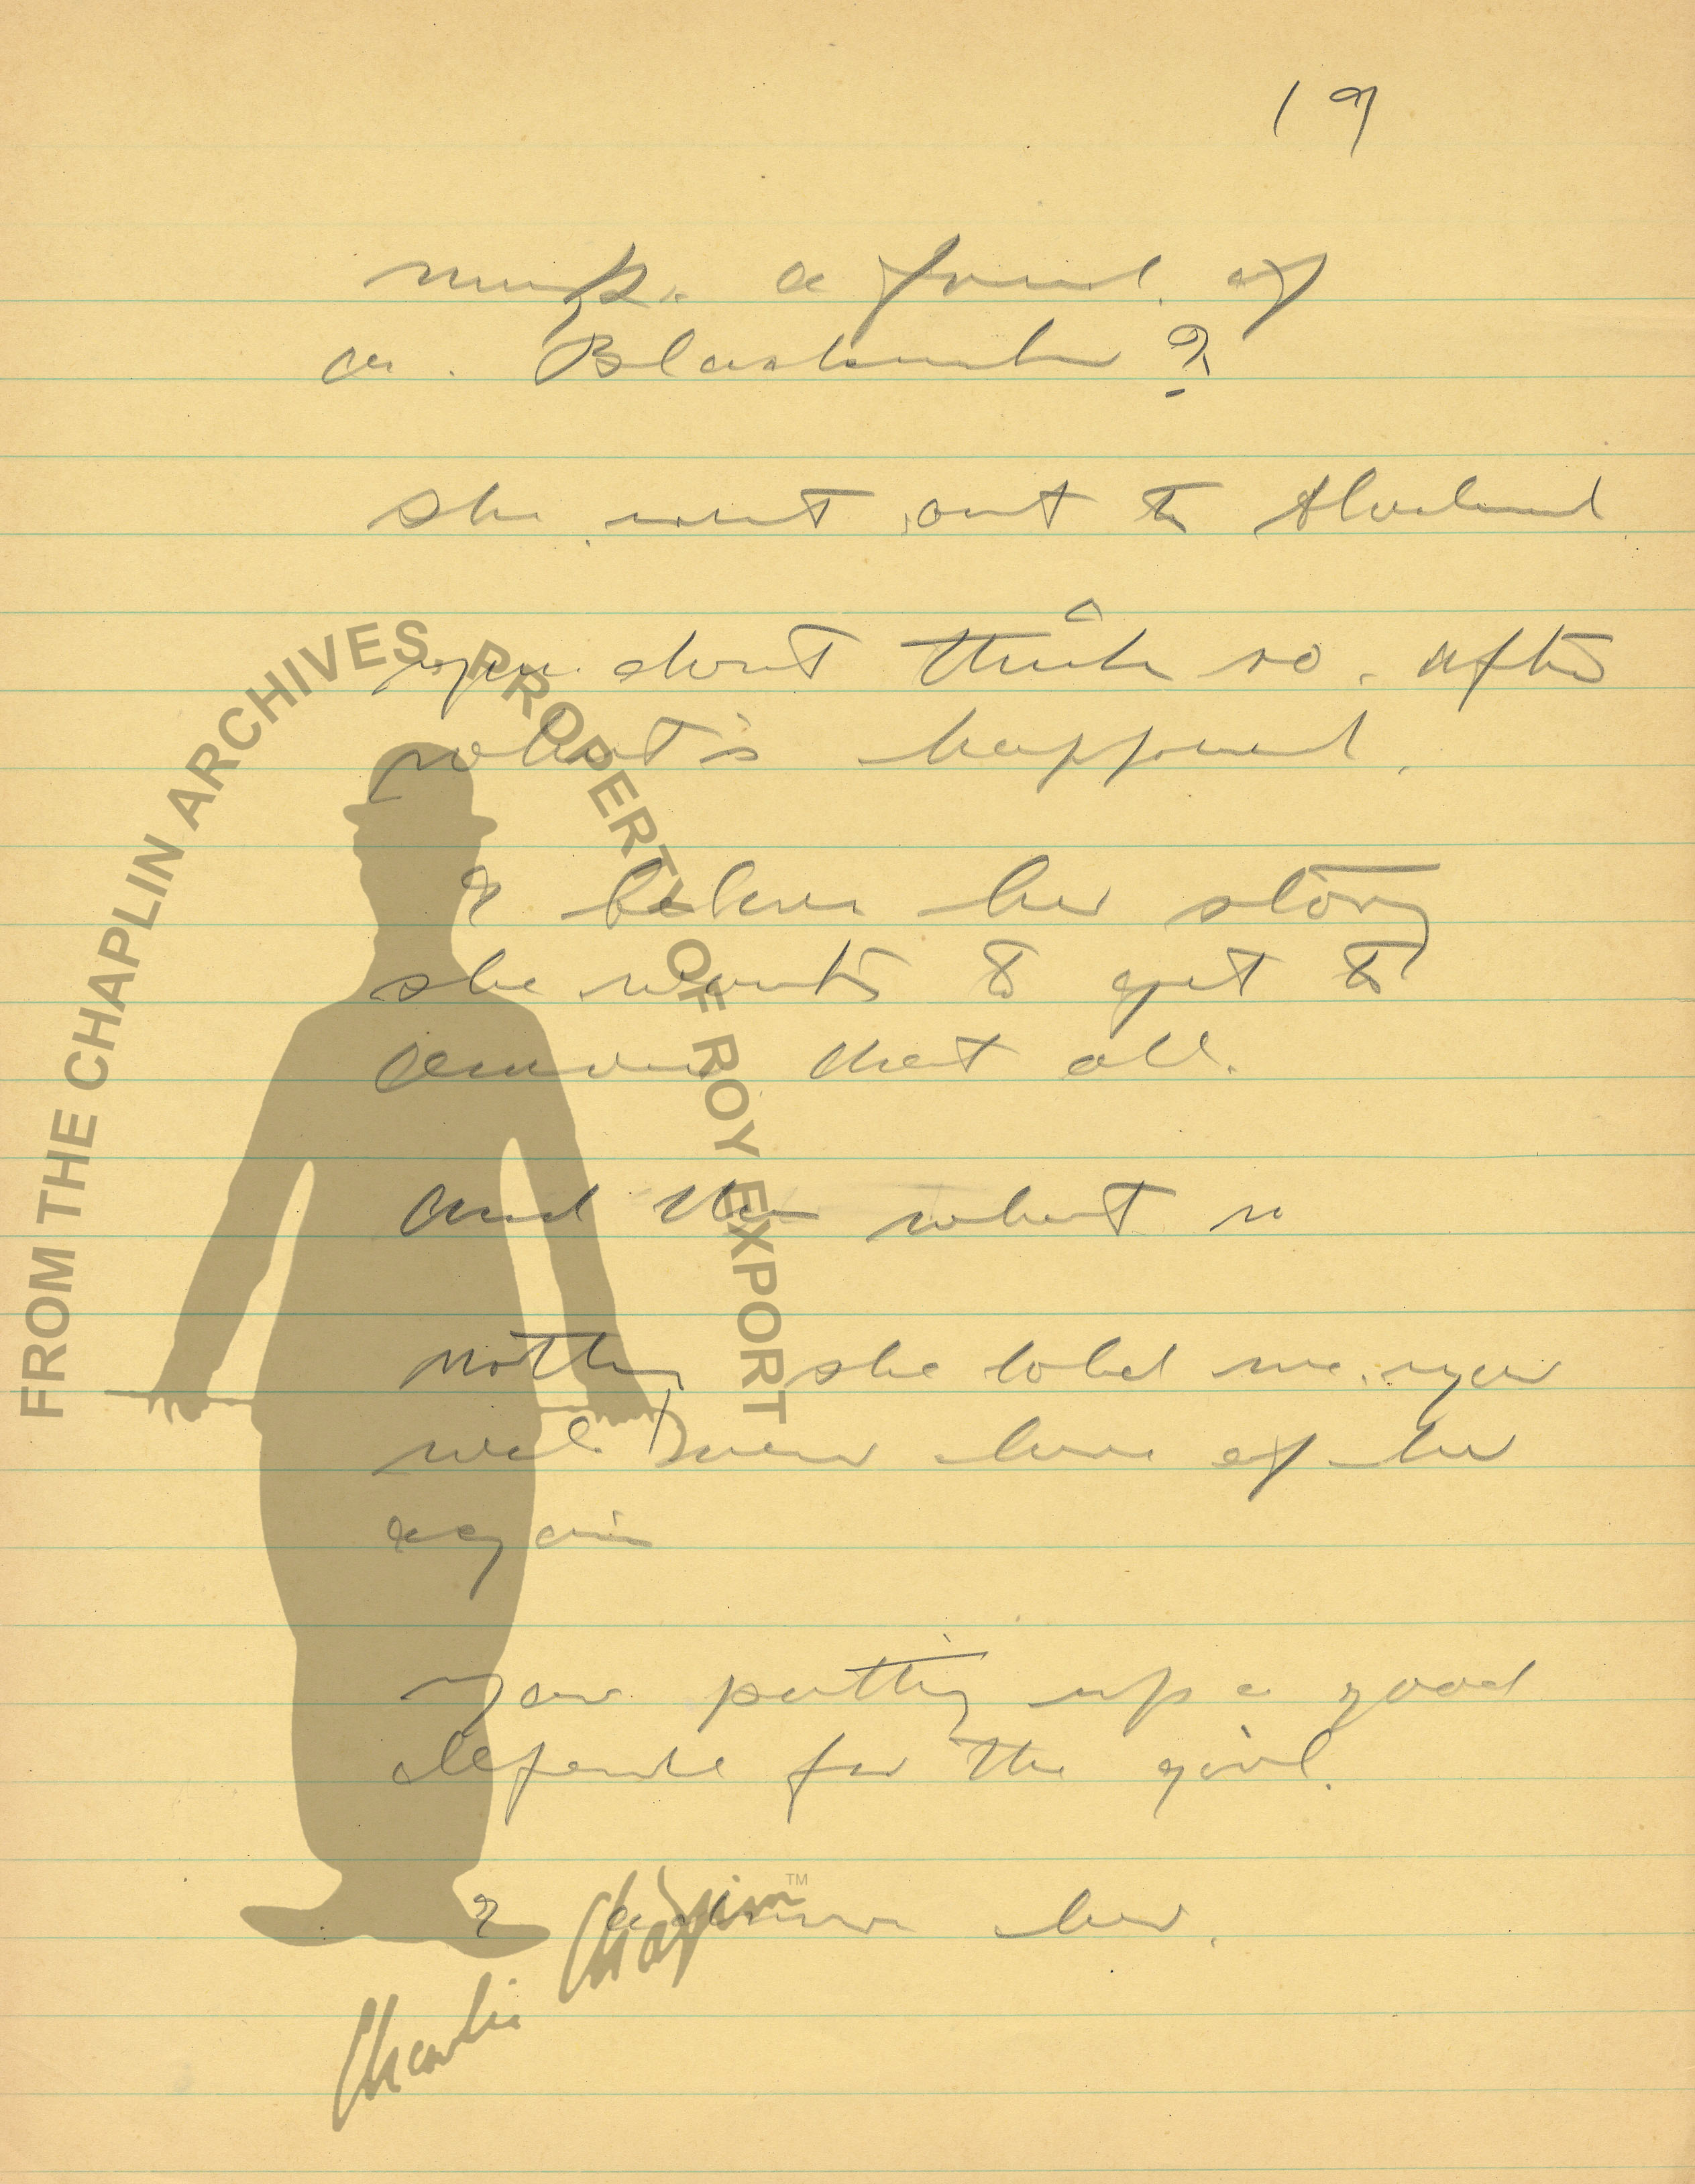 19
a friend of
a Blackmailer?
she went out to
you dont think so. after
what's happened.
I believe her story
she wants to get to
America that all.
and then what
nothing she told me. you
will never hear of her
again
your putting up a good
defense for the girl.
I admire her.
FROM THE CHAPLIN ARCHIVES PROPERTY OF ROY EXPORT
Charlie Chaplin™